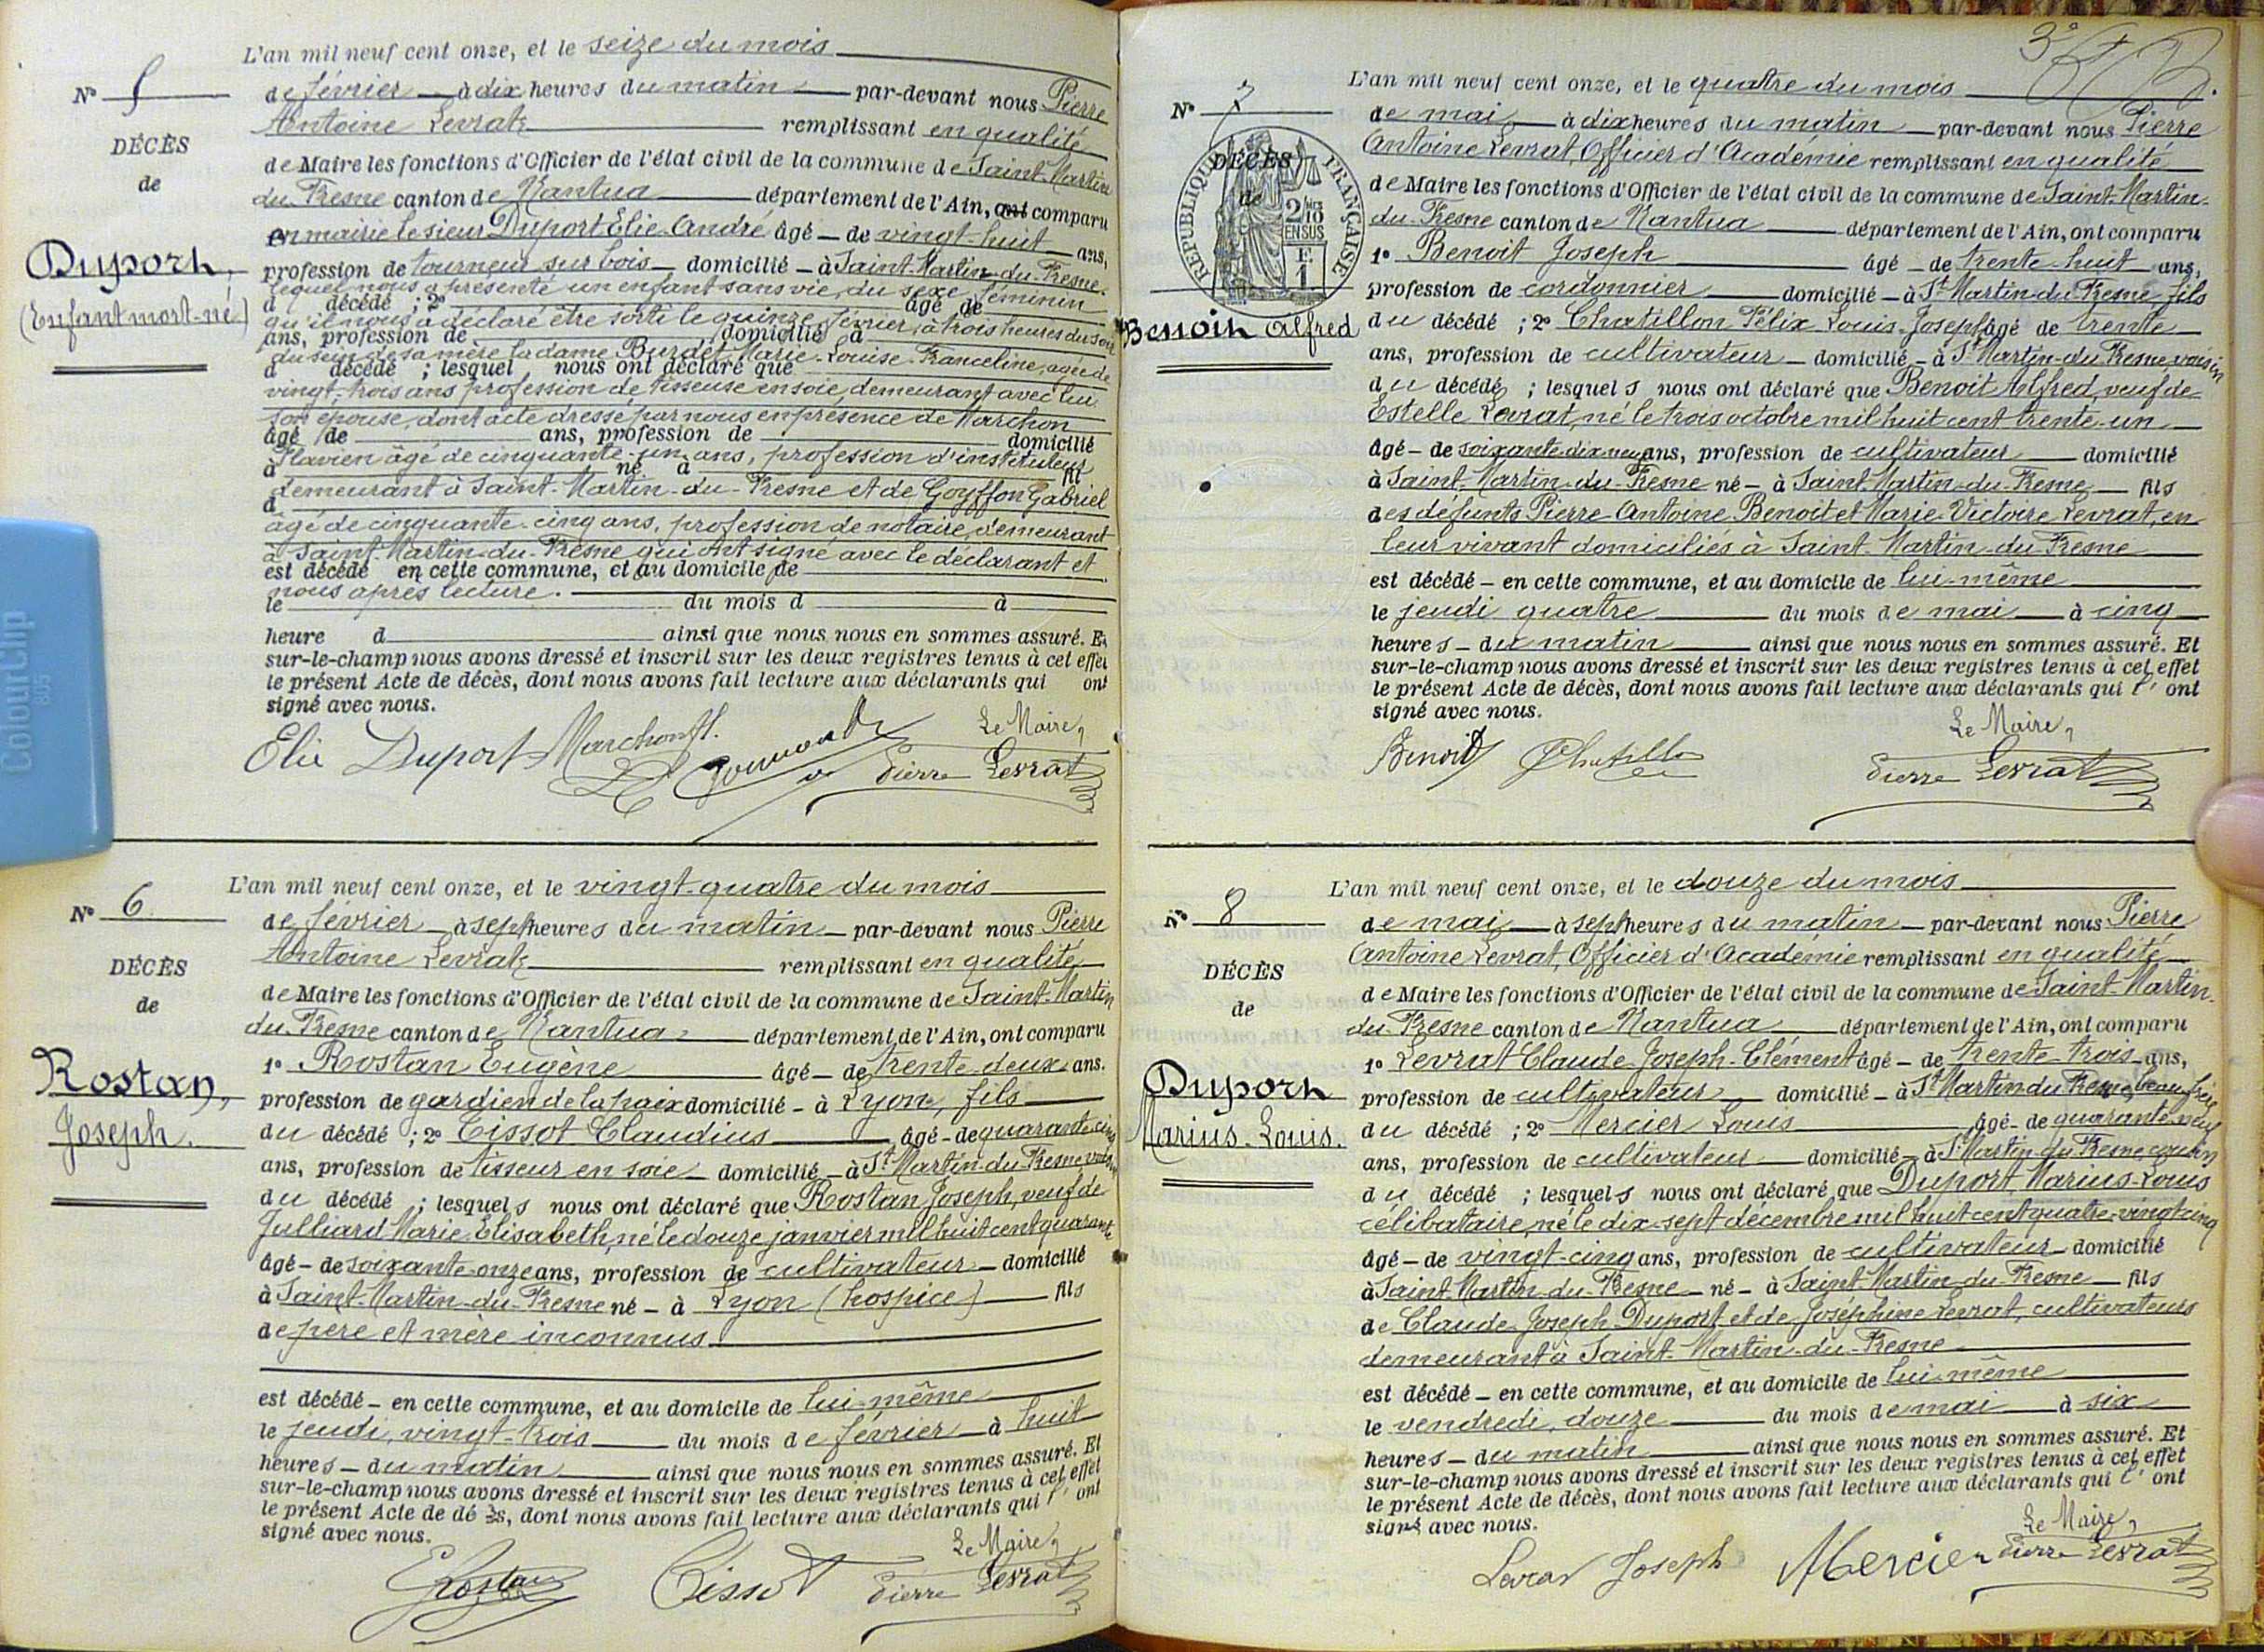 N° 5
DÉCÈS
de
Duport,
(Enfant mort-né)
L'an mil neuf cent onze, et le seize du mois
de février à dix heures du matin par-devant nous Pierre
Antoine Levrat remplissant en qualité
de Maire les fonctions d'Officier de l'état civil de la commune de Saint-Martin
du-Fresne canton de Nantua département de l'Ain, ont comparu
en mairie le sieur Duport Elie-André âgé de vingt-huit ans,
profession de tourneur sur bois domicilié à Saint-Martin-du-Fresne.
lequel nous a présenté un enfant sans vie, du sexe féminin
d décédé ; 2° âgé de
qu'il nous a déclaré être sorti le quinze février à trois heures du soir
ans, profession de domicilié à
du sein de sa mère la dame Burdet Marie-Louise-Franceline, agée de
d décédé ; lesquel nous ont déclaré que
vingt-trois ans profession de tisseuse en soie, demeurant avec lui
son épouse, dont acte dressé par nous en présence de Marchon
âgé de ans, profession de domicilié
Flavien âgé de cinquante-un ans, profession d'instituteur
à né à fil
demeurant à Saint-Martin-du-Fresne et de Goyffon Gabriel
d
âgé de cinquante-cinq ans, profession de notaire, demeurant
à Saint-Martin-du-Fresne qui ont signé avec le déclarant et
est décédé en cette commune, et au domicile de
nous après lecture.
le du mois d à
heure d ainsi que nous nous en sommes assuré. Et
sur-le-champ nous avons dressé et inscrit sur les deux registres tenus à cet effet
le présent Acte de décès, dont nous avons fait lecture aux déclarants qui ont
signé avec nous.
Le Maire,
Elie Duport Marchon fl. Pierre Levrat
N° 6
DÉCÈS
de
Rostan,
Joseph.
L'an mil neuf cent onze, et le vingt-quatre du mois
de février à sept heures du matin par-devant nous Pierre
Antoine Levrat remplissant en qualité
de Maire les fonctions d'Officier de l'état civil de la commune de Saint-Martin
du-Fresne canton de Nantua département de l'Ain, ont comparu
1° Rostan Eugène âgé de trente-deux ans.
profession de gardien de la paix domicilié à Lyon, fils
du décédé ; 2° Tissot Claudius âgé de quarante-cinq
ans, profession de tisseur en soie domicilié à St Martin-du-Fresne voisin
du décédé ; lesquels nous ont déclaré que Rostan Joseph, veuf de
Julliard Marie-Elisabeth, né le douze janvier mil huit cent quarante
âgé de soixante-onze ans, profession de cultivateur domicilié
à Saint-Martin-du-Fresne né à Lyon (hospice) fils
de père et mère inconnus
est décédé en cette commune, et au domicile de lui-même
le jeudi, vingt-trois du mois de février à huit
heures du matin ainsi que nous nous en sommes assuré. Et
sur-le-champ nous avons dressé et inscrit sur les deux registres tenus à cet effet
le présent Acte de décès, dont nous avons fait lecture aux déclarants qui l'ont
signé avec nous.
Le Maire,
ERostan Tissot Pierre Levrat
3e
N° 7
DÉCÈS
de
RÉPUBLIQUE FRANÇAISE
2/10 EN SUS
F.
1
Benoit Alfred
L'an mil neuf cent onze, et le quatre du mois
de mai à dix heures du matin par-devant nous Pierre
Antoine Levrat, Officier d'Académie remplissant en qualité
de Maire les fonctions d'Officier de l'état civil de la commune de Saint-Martin-
du-Fresne canton de Nantua département de l'Ain, ont comparu
1° Benoit Joseph âgé de trente-huit ans,
profession de cordonnier domicilié à St Martin-du-Fresne, fils
du décédé ; 2° Chatillon Félix-Louis-Joseph âgé de trente
ans, profession de cultivateur domicilié à St Martin-du-Fresne, voisin
du décédé ; lesquels nous ont déclaré que Benoit Alfred, veuf de
Estelle Levrat, né le trois octobre mil huit cent trente-un
âgé de soixante-dix-neuf ans, profession de cultivateur domicilié
à Saint-Martin-du-Fresne né à Saint-Martin-du-Fresne fils
des défunts Pierre-Antoine Benoit et Marie-Victoire Levrat, en
leur vivant domiciliés à Saint-Martin-du-Fresne
est décédé en cette commune, et au domicile de lui-même
le jeudi quatre du mois de mai à cinq
heures du matin ainsi que nous nous en sommes assuré. Et
sur-le-champ nous avons dressé et inscrit sur les deux registres tenus à cet effet
le présent Acte de décès, dont nous avons fait lecture aux déclarants qui l'ont
signé avec nous.
Le Maire,
Benoit Pierre Levrat
N° 8
DÉCÈS
de
Duport
Marius-Louis.
L'an mil neuf cent onze, et le douze du mois
de mai à sept heures du matin par-devant nous Pierre
Antoine Levrat, Officier d'Académie remplissant en qualité
de Maire les fonctions d'Officier de l'état civil de la commune de Saint-Martin-
du-Fresne canton de Nantua département de l'Ain, ont comparu
1° Levrat Claude-Joseph-Clément âgé de trente-trois ans,
profession de cultivateur domicilié à St Martin du Fresne, beau-frère
du décédé ; 2° Mercier Louis âgé de quarante-neuf
ans, profession de cultivateur domicilié à St Martin du Fresne, cousin
du décédé ; lesquels nous ont déclaré que Duport Marius-Louis
célibataire, né le dix-sept décembre mil huit cent quatre-vingt-cinq
âgé de vingt-cinq ans, profession de cultivateur domicilié
à Saint-Martin-du-Fresne né à Saint-Martin-du-Fresne fils
de Claude-Joseph Duport et de Joséphine Levrat, cultivateurs
demeurant à Saint-Martin-du-Fresne
est décédé en cette commune, et au domicile de lui-même
le vendredi, douze du mois de mai à six
heures du matin ainsi que nous nous en sommes assuré. Et
sur-le-champ nous avons dressé et inscrit sur les deux registres tenus à cet effet
le présent Acte de décès, dont nous avons fait lecture aux déclarants qui l'ont
signé avec nous.
Le Maire,
Levrat Joseph Mercier Pierre Levrat
ColourClip
805